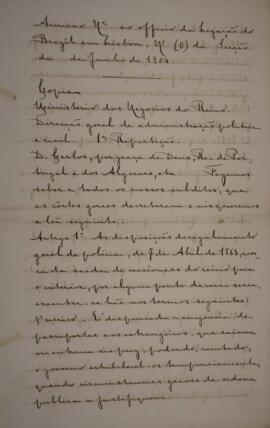 Annexo Nº ao officio da Legação do
Brazil em Lisboa, Nº (0) da Secção
de de Junho de 1904.
Copia
Ministerio dos Negocios do Reino.
Direcção geral de administração politica
e civil. 1ª Repartição.
D. Carlos, por graça de Deus, Rei de Por-
tugal e dos Algarves, etc. Fazemos
saber a todos os nossos subditos, que
as côrtes geraes decretaram e nós queremos
a lei seguinte:
Artigo 1º As disposições do regulamento
geral de policia, de 7 de Abril de 1863, acer-
ca da saida de nacionaes do reino para
o exterior, por algum porto da raia secca,
executar-se-hão nos termos seguintes:
§ unico. É dispensada a exigencia de
passaportes aos estrangeiros, que saiam
ou entrem no paiz, podendo, comtudo,
o governo estabelecel-os temporariamente,
quando circumstancias graves de ordem
publica o justifiquem.